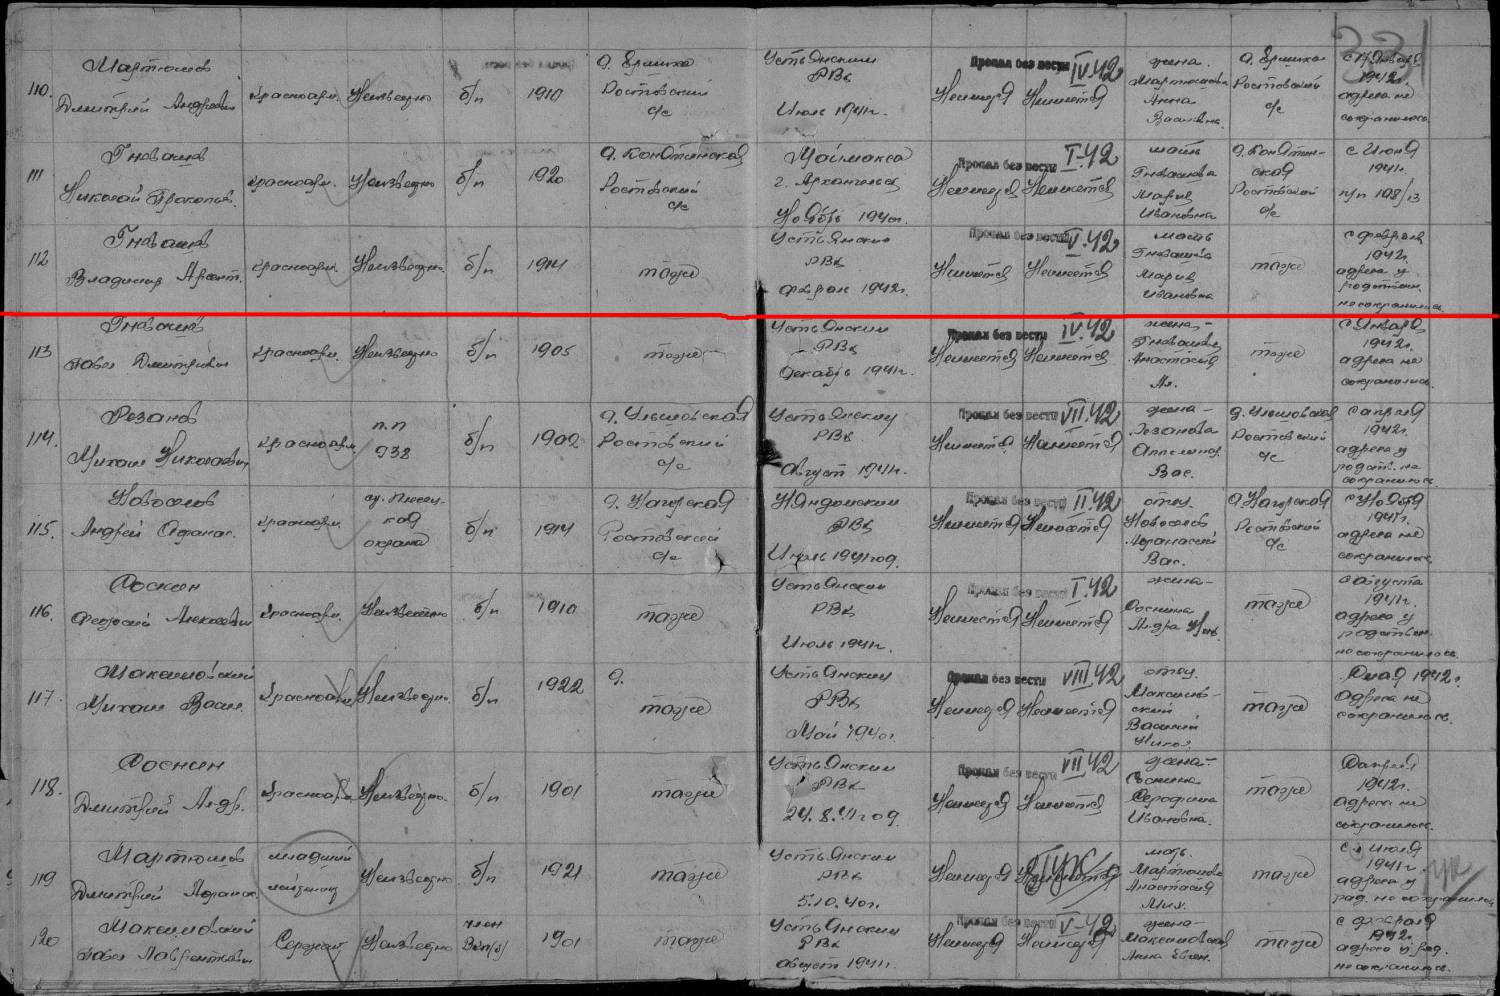 331
110. Мартюшов Дмитрий Андреевич красноарм. Неизвестно б/п 1910 д. Ершиха Ростовский с/с Устьянский РВк Июль 1941г. Пропал без вести IV.42 Неимеется Неимеется жена. Мартюшова Анна Васильевна д. Ершиха Ростовский с/с с Января 1942г. адреса не сохранилось
111 Гневашев Николай Прокопьев. красноарм. Неизвестно б/п 1920 Ростовский с/с Маймакса г. Архангельск Ноябрь 1940г. Пропал без вести I.42 Неимеется Неимеется мать Гневашева Мария Ивановна Ростовский с/с с Июня 1941г. п/п 198/13
112 Гневашев Владимир красноарм. Неизвестно б/п 1914 тоже Устьянский РВк Феврал 1942г. Пропал без вести V.42 Неимеется Неимеется мать Мария Ивановна тоже с февраля 1942г. адреса у родствен. не сохранилось
113 Гневашев Павел Дмитриевич красноарм. Неизвестно б/п 1905 тоже Устьянский РВк Декабрь 1941г. Пропал без вести IV.42 Неимеется Неимеется жена- Гневашева Анастасия тоже с Января 1942г. адреса не сохранилось.
114. Резанов Михаил Николаевич красноарм. п.п 938 б/п 1902 Ростовский с/с Устьянский РВк Август 1941г. Пропал без вести VII.42 Неимеется Неимеется жена- Резанова Вас. Ростовский с/с с апреля 1942г. адреса у родств. не сохранилось
115. Новоселов Андрей Афанас. красноарм. охрана б/п 1914 д. Нагорская Ростовский с/с Няндомский РВк Июль 1941год. Пропал без вести II.42 Неимеется Неимеется отец. Новоселов Афанасий Вас. д. Нагорская Ростовский с/с с Ноября 1941г. адреса не сохранилось
116. Федосий Алексеевич красноарм. Неизвестно б/п 1910 тоже Устьянский РВк Июль 1941г. Пропал без вести I.42 Неимеется Неимеется жена- тоже с августа 1941г. адреса у родствен. не сохранилось.
117. Максимовский Михаил Васил. Красноарм. Неизвестно. б/п 1922 д. тоже Устьянский РВк Май 1940г. Пропал без вести VIII.42 Неимеется Неимеется отец. Максимовский Василий Никол. тоже 1942г. Адреса не сохранилось.
118. Дмитрий Андр. Красноарм. Неизвестно. б/п 1901 тоже Устьянский РВк 24.8.41год. Пропал без вести VII.42 Неимеется Неимеется жена- Серафима Ивановна. тоже 1942г. адреса не сохранилось.
119 Мартюшов Дмитрий Афанас. младший лейтенант Неизвестно б/п 1921 тоже Устьянский РВк 5.10.40г. Неимеется мать. Мартюшова Анастасия Мих. тоже с Июля 1941г. адреса у род. не сохранилось
120 Максимовский Павел Лаврентьевич Сержант Неизвестно член 1901 тоже Устьянский РВк август 1941г. Пропал без вести V-42 Неимеется Неимеется жена- Максимовская Анна Евген. тоже с февраля 1942г. адреса у род. не сохранилось.